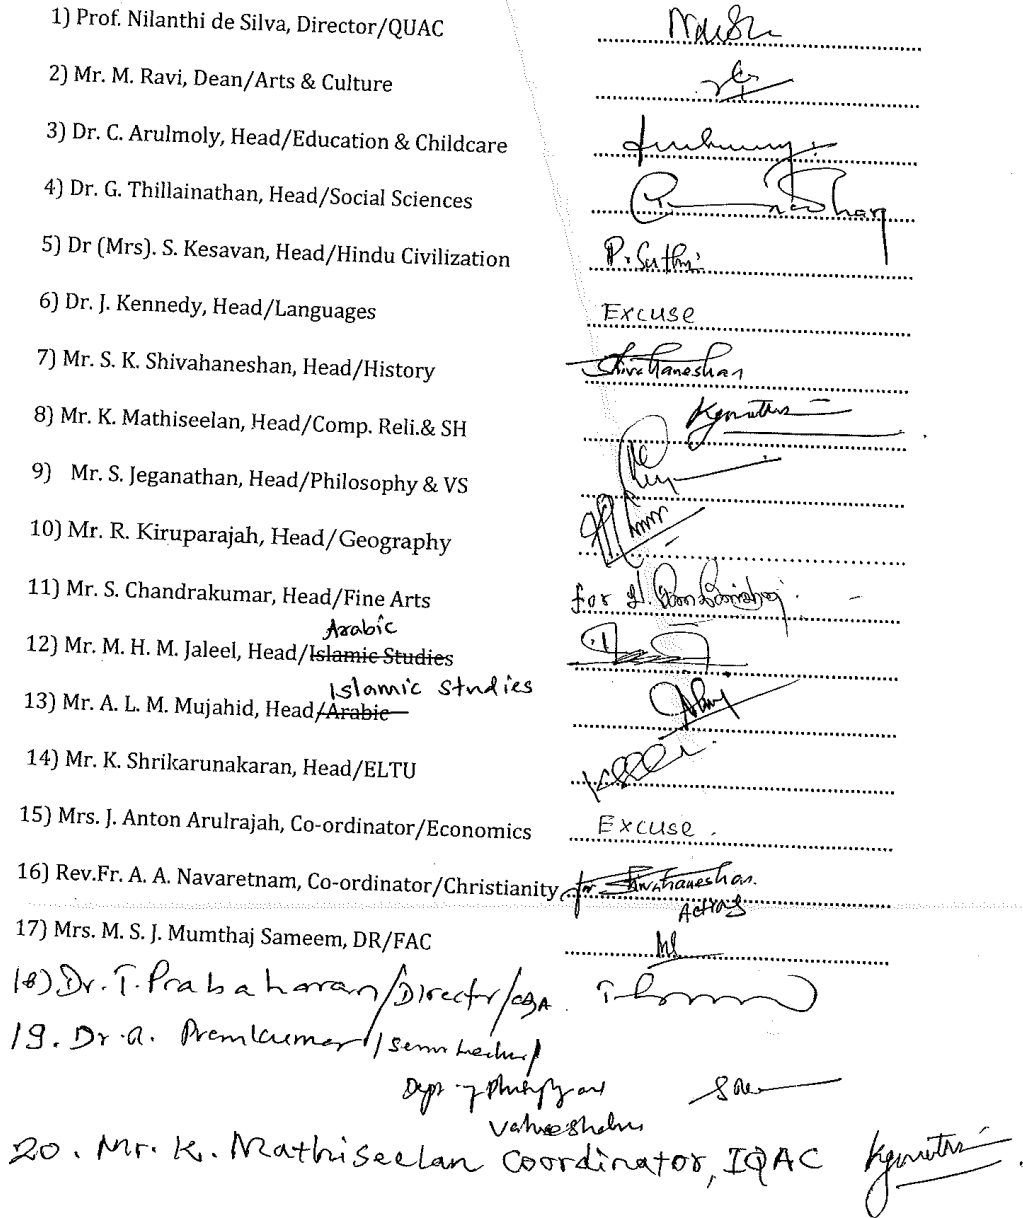 1) Prof. Nilanthi de Silva, Director/QUAC
2) Mr. M. Ravi, Dean/Arts & Culture
3) Dr. C. Arulmoly, Head/Education & Childcare
4) Dr. G. Thillainathan, Head/Social Sciences
5) Dr (Mrs). S. Kesavan, Head/Hindu Civilization P. Suthi
6) Dr. J. Kennedy, Head/Languages Excuse
7) Mr. S. K. Shivahaneshan, Head/History Shivahaneshan
8) Mr. K. Mathiseelan, Head/Comp. Reli.& SH
9) Mr. S. Jeganathan, Head/Philosophy & VS
10) Mr. R. Kiruparajah, Head/Geography
11) Mr. S. Chandrakumar, Head/Fine Arts for
Arabic
12) Mr. M. H. M. Jaleel, Head/Islamic Studies
Islamic Studies
13) Mr. A. L. M. Mujahid, Head/Arabic
14) Mr. K. Shrikarunakaran, Head/ELTU
15) Mrs. J. Anton Arulrajah, Co-ordinator/Economics Excuse.
16) Rev.Fr. A. A. Navaretnam, Co-ordinator/Christianity for Shivahaneshan.
Acting
17) Mrs. M. S. J. Mumthaj Sameem, DR/FAC
18) Dr. T. Prabaharan/Director/
19. Dr. A. Premkumar/
Dept of Philosophy and
20. Mr. K. Mathiseelan Coordinator, IQAC